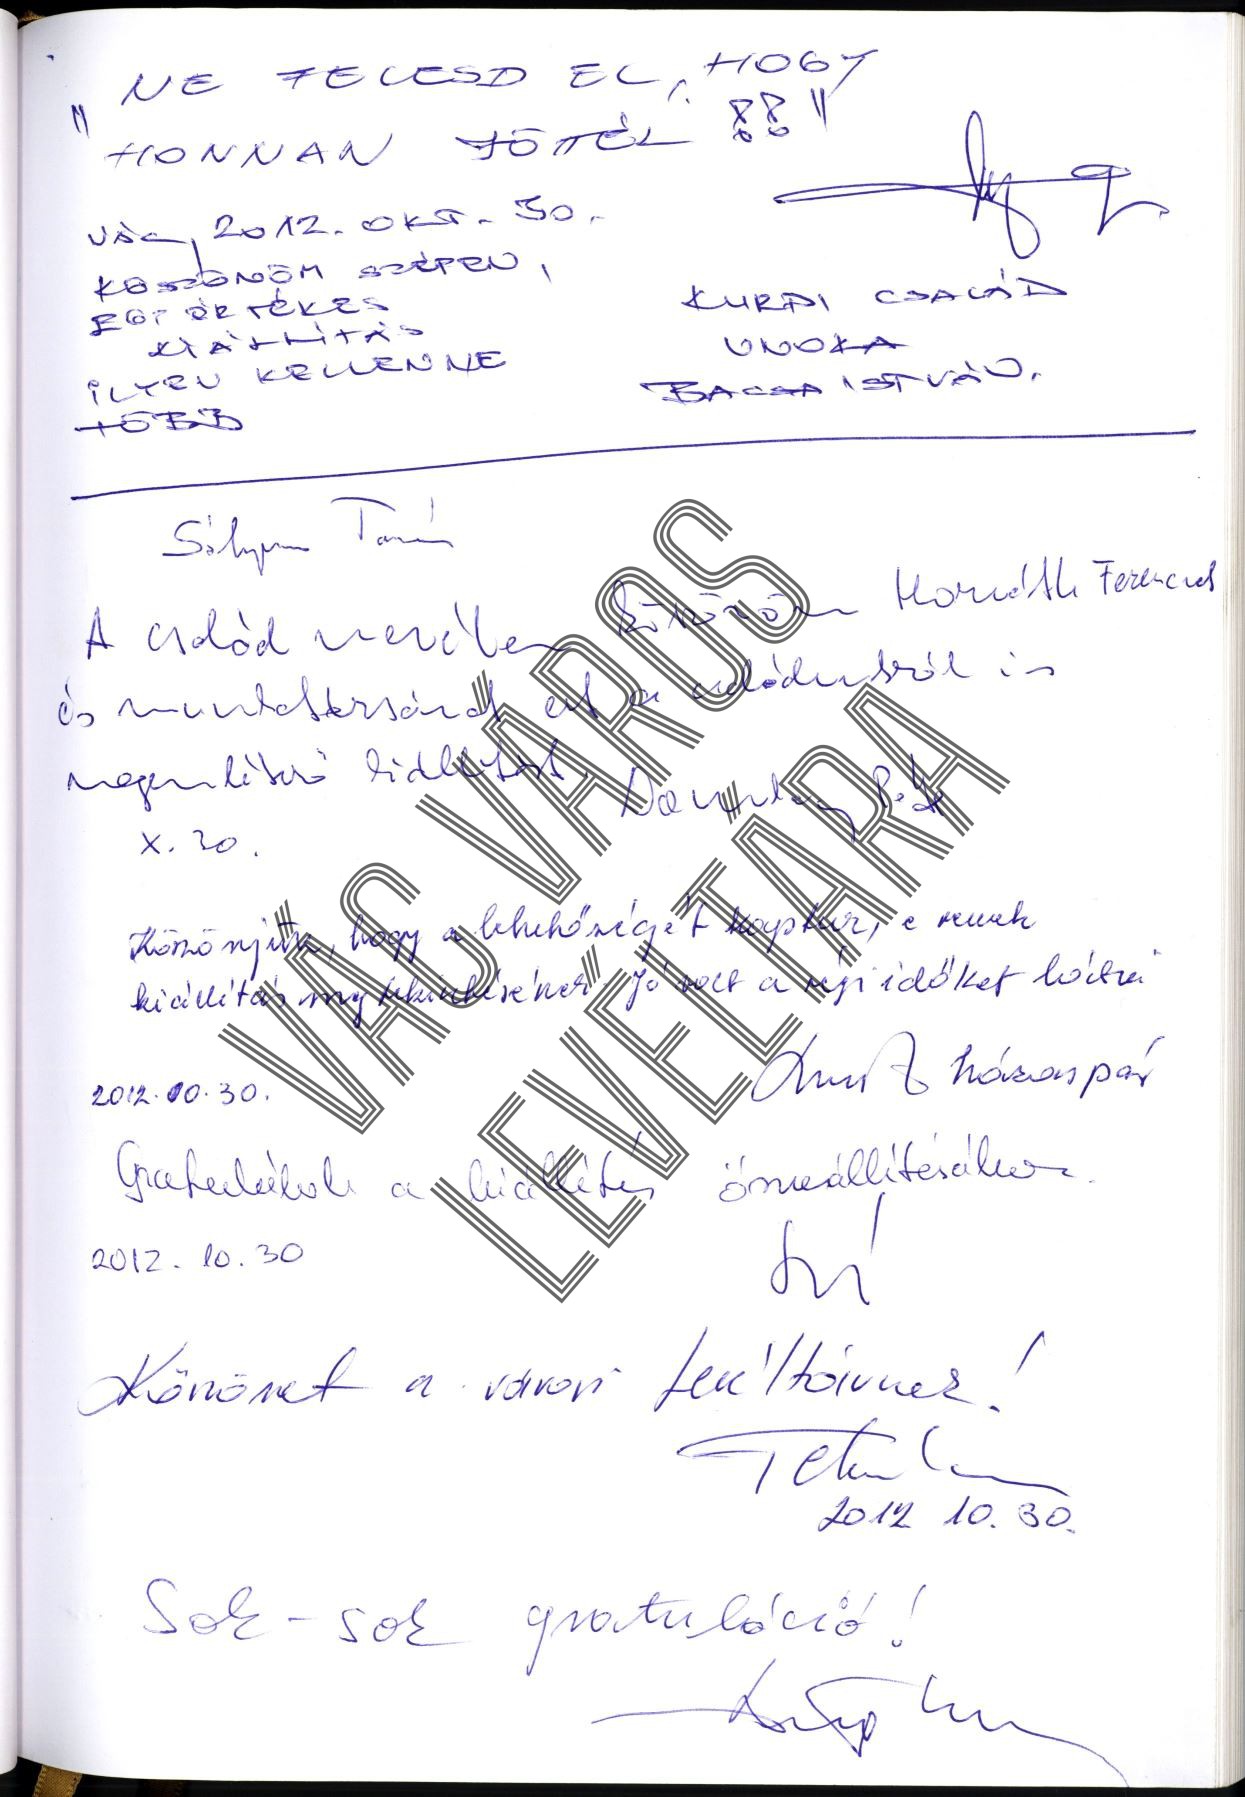 "NE FELESD EL, HOGY
HONNAN JÖTTÉL !!"
VÁC, 2012. OKT. 30.
KÖSZÖNÖM SZÉPEN,
EGY ÉRTÉKES
KIÁLLÍTÁS
ILYEN KELLENNE
TÖBB
KURDI CSALÁD
UNOKA
BACSA ISTVÁN.
Tamás
A család nevében köszönöm Horváth Ferencnek
és munkatársának ezt a családunkról is
megemlékező kiállítást.
X. 30.
Köszönjük, hogy a lehetőségét kaptuk, e remek
kiállítás megtekintésének. Jó volt a régi időket látni
házaspár
2012. 10. 30.
Gratulálok a kiállítás összeállításához.
2012. 10. 30
Köszönet a városi
2012 10. 30.
Sok-sok gratuláció!
VÁC VÁROS
LEVÉLTÁRA